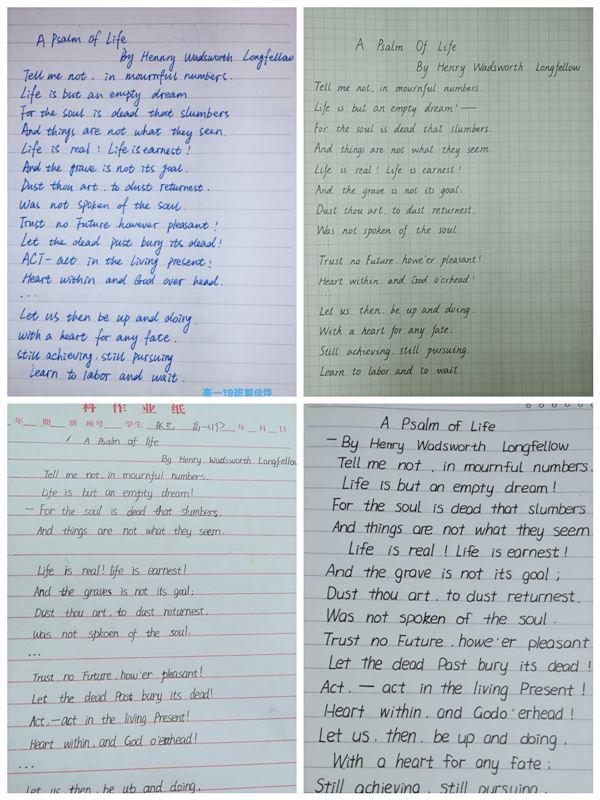 A Psalm of Life
By Hennry Wadsworth Longfellow
Tell me not, in mournful numbers.
Life is but an empty dream
For the soul is dead that slumbers
And things are not what they seen.
Life is real! Life is earnest!
And the grave is not its goal.
Dust thou art. to dust returnest.
Was not spoken of the soul.
Trust no Future. however pleasant!
Let the dead past bury its dead!
ACT-act in the living present!
Heart within and God over head.
...
Let us then be up and doing.
with a heart for any fate.
still achieving. still pursuing
Learn to labor and wait.
高一19班郭佳烨
A Psalm Of Life
By Henry Wadsworth Longfellow
Tell me not, in mournful numbers.
Life is but an empty dream! —
For the soul is dead that slumbers.
And things are not what they seem
Life is real! Life is earnest!
And the grave is not its goal;
Dust thou art. to dust returnest,
Was not spoken of the soul.
...
Trust no Future. howe'er pleasant!
Heart within, and God o'erhead!
Let us. then. be up and doing.
With a heart for any fate;
Still achieving. still pursuing.
Learn to labor and to wait.
科作业纸
年 期 班 座号 学生 高一 年 月 日
A Psalm of life
By Henry Wadsworth Longfellow
Tell me not. in mournful numbers.
Life is but an empty dream!
— For the soul is dead that slumbers,
And things are not what they seem.
Life is real! life is earnest!
And the graves is not its goal;
Dust thou art. to dust returnest.
Was not spkoen of the soul.
...
Trust no Future. how'er pleasant!
Let the dead Past bury its dead!
Act.—act in the living Present!
Heart within, and God o'erhead!
Let us. then. be up and doing.
A Psalm of Life
—By Henry Wadsworth Longfellow
Tell me not , in mournful numbers.
Life is but an empty dream!
For the soul is dead that slumbers
And things are not what they seem
Life is real! Life is earnest!
And the grave is not its goal;
Dust thou art. to dust returnest,
Was not spoken of the soul.
Trust no Future. howe'er pleasant
Let the dead Past bury its dead!
Act.— act in the living Present!
Heart within. and Godo'erhead!
Let us. then. be up and doing,
With a heart for any fate;
Still achieving. still pursuing.